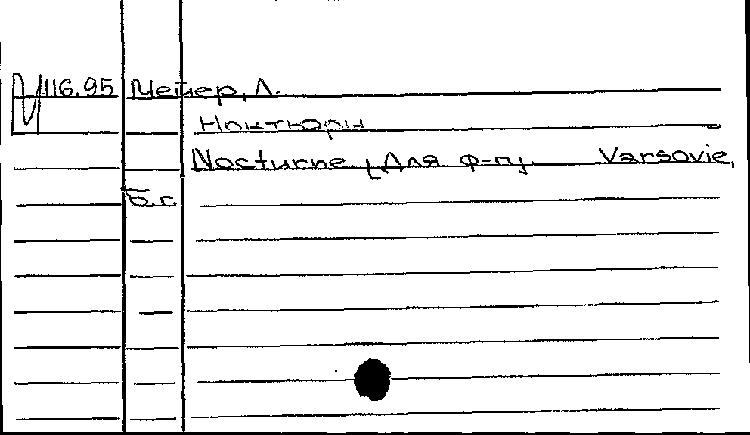 116.95 Мейер, Л.
Ноктюрн
Nocturne [Для ф-п]. Varsovie,
Б.г.